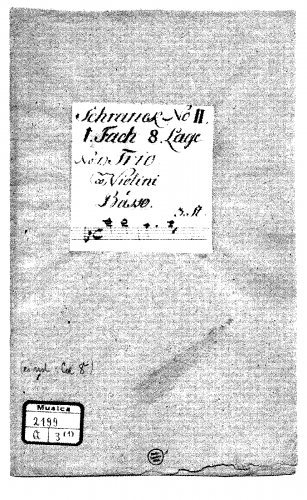 Schranck No II.
1. Fach 8. Lage
No 1) TRIO
co Violini
Basso.
3. St
Musica
2199
Q 3 (1)